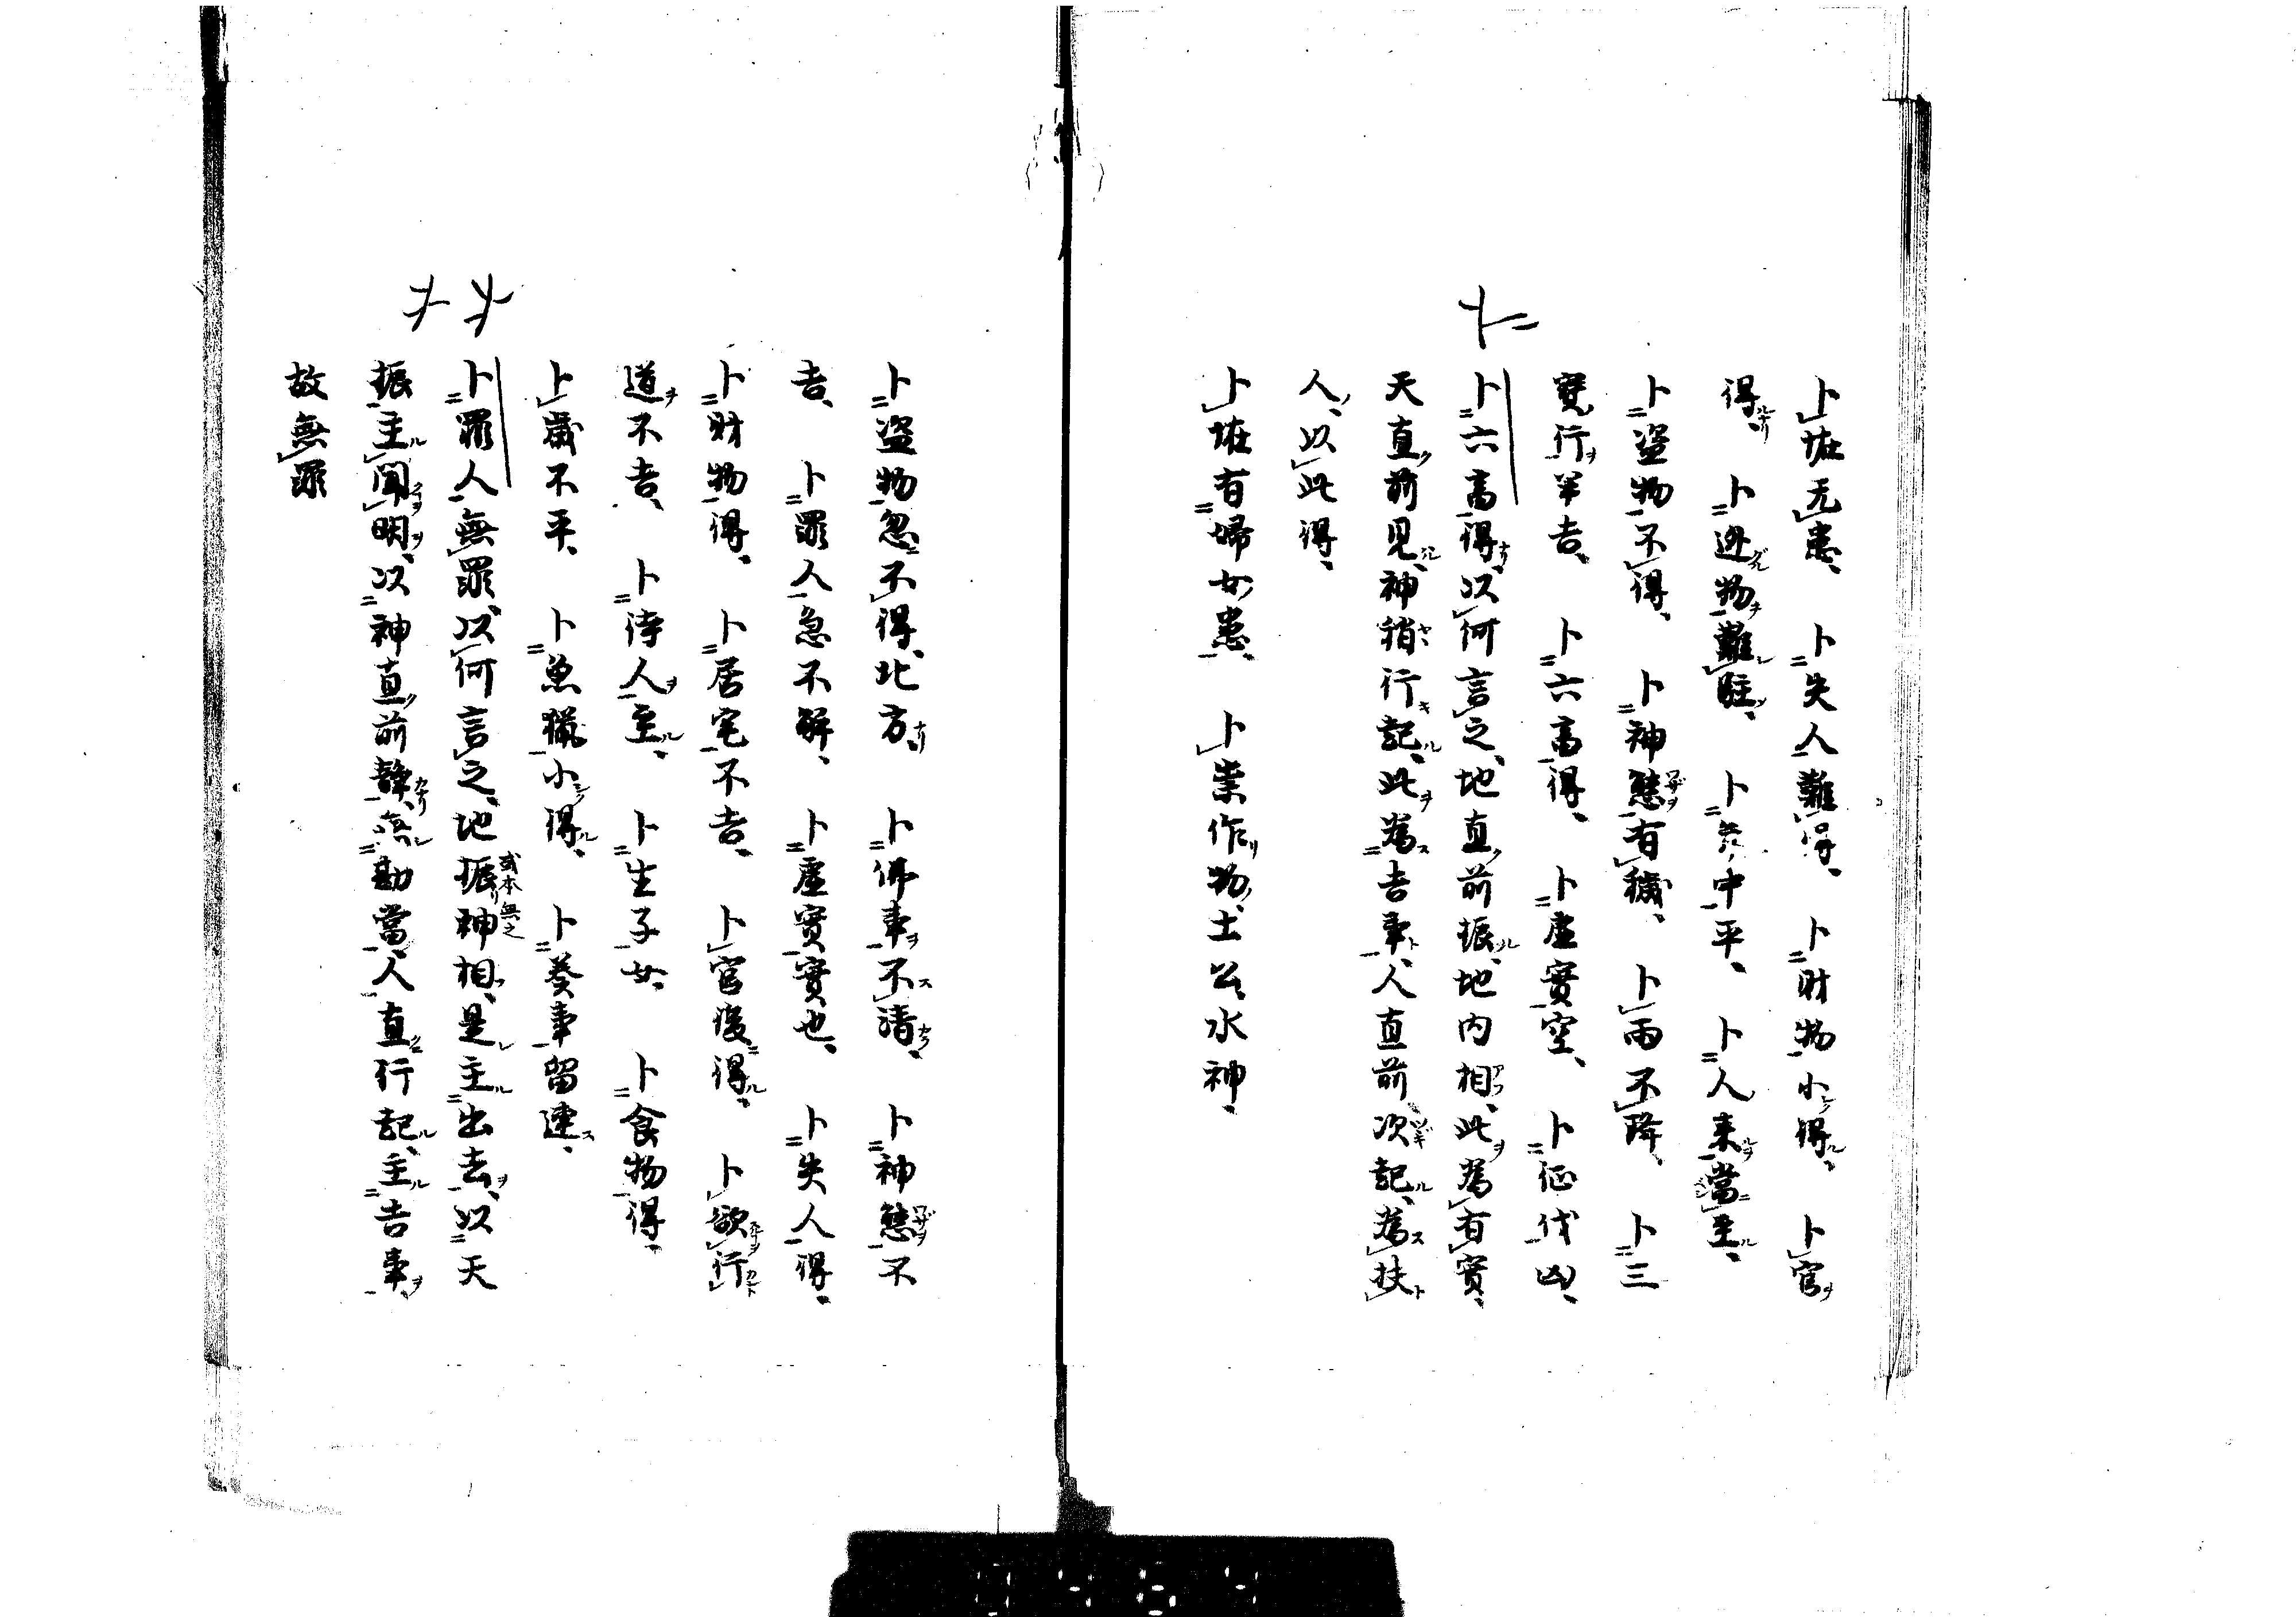 卜病无患、 卜失人難得、 卜財物小得、 卜官
得、 卜逃物難駐、 卜 中平、 卜人来當至、
卜盗物不得、 卜神態有穢、 卜雨不降、 卜三
寳行半吉、 卜六畜得、 卜虚實空、 卜征伐凶、
卜六畜得、以何言之、地直前振、地内相、此為有實、
天直前見、神稍行記、此為吉事、人直前次記、為扶
人、以此得、
卜病有婦女患、 卜祟作物、土公水神、
卜盗物忽不得、北方 卜佛事不清、 卜神態不
吉、 卜罪人急不解、 卜虚實實也、 卜失人得、
卜財物得、 卜居宅不吉、 卜官後得、 卜欲行
道不吉、 卜待人至、 卜生子女、 卜食物得、
卜歳不平、 卜魚猟小得、 卜葬事留連、
卜罪人無罪、以何言之、地振神相、是主出去、以天
或本無之
振主聞明、以神直前静、 勘當、人直行記、主吉事、
故無罪